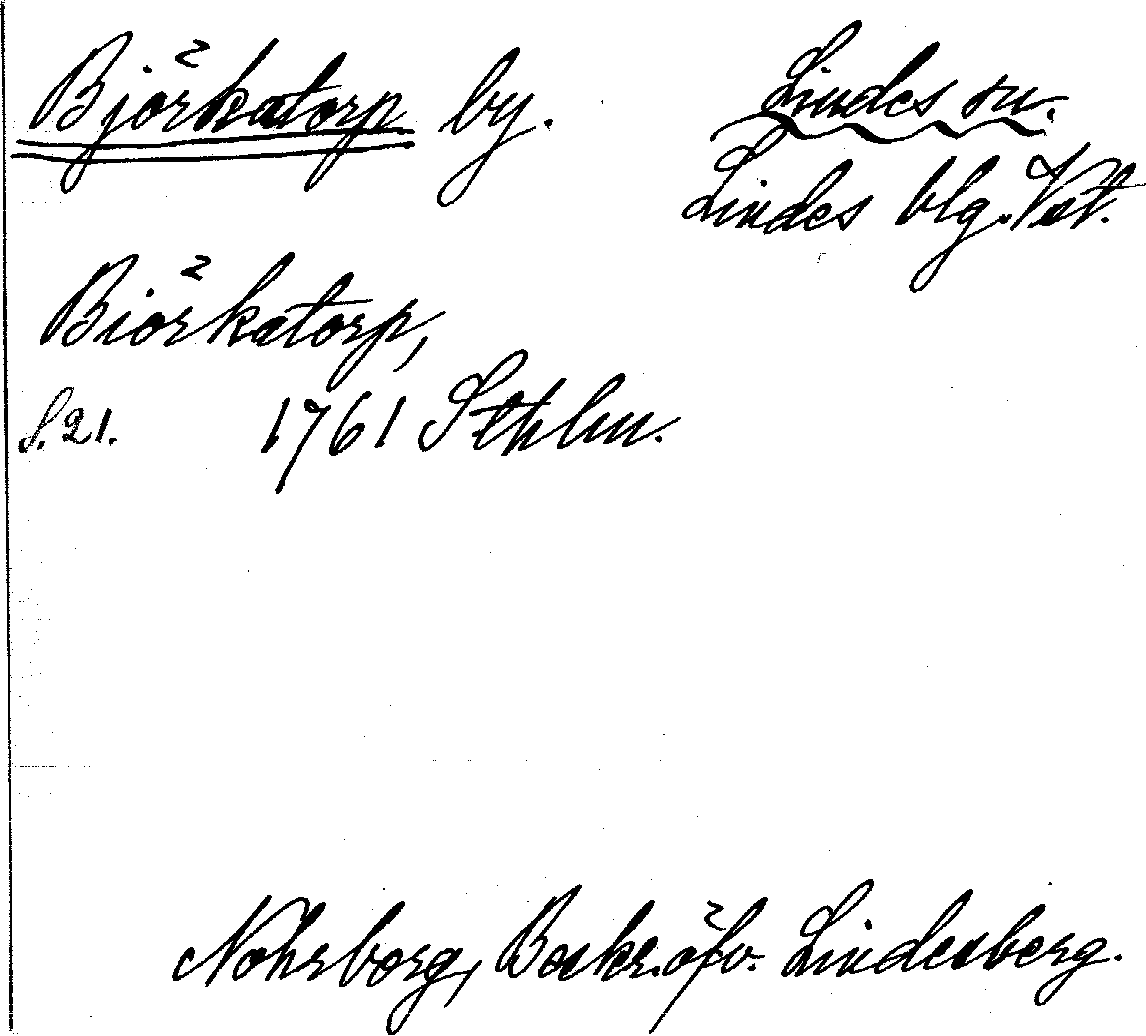 Björkatorp by. Lindes sn.
Lindes blg. Vstm.
Biörkatorp,
S. 21. 1761 Sthlm.
Nohrborg, Beskr. öfv. Lindesberg.